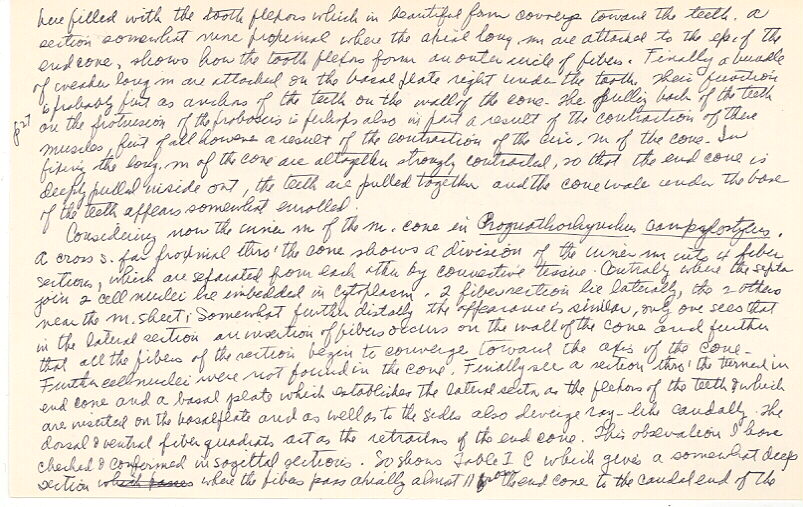 here filled with the tooth flexors which in beautiful form converge toward the teeth. A
section somewhat more proximal where the axial long. m are attached to the epi. of the
end cone, shows how the tooth flexors form an outer circle of fibers. Finally a bundle
of weaker long m are attached on the basal plate right under the tooth. Their function
is probably just as anchors of the teeth on the wall of the cone. The pulling back of the teeth
on the protrusion of the proboscis is perhaps also in part a result of the contraction of these
muscles, first of all however a result of the contraction of the circ. m of the cone. In
fixing the long. m of the cone are altogether strongly contracted, so that the end cone is
deeply pulled inside out, the teeth are pulled together and the cone wale under the base
of the teeth appears somewhat enrolled.
Considering now the inner m of the m. cone in Prognathorhynchus campylostylus.
A cross s. far proximal thro' the cone shows a division of the inner m into 4 fiber
sections, which are separated from each other by connective tissue. Centrally where the septa
join 2 cell nuclei lie imbedded in cytoplasm. 2 fiber section lie laterally, the 2 others
near the m. sheet; Somewhat further distally the appearance is similar, only one sees that
in the lateral section an insertion of fibers occurs on the wall of the cone and further
that all the fibers of the section begin to converge toward the axis of the cone.
Further cell nuclei were not found in the cone. Finally see a section thro' the turned in
end cone and a basal plate which establishes the lateral sects as the flexors of the teeth & which
are inserted on the basal plate and as well as to the sides also diverge ray-like caudally. The
dorsal & ventral fiber quadrants act as the retractors of the end cone. This observation I have
checked & confirmed in sagittal sections. So shows Table I C which gives a somewhat deeper
section which passes where the fibers pass axially almost 11 from the end cone to the caudal end of the